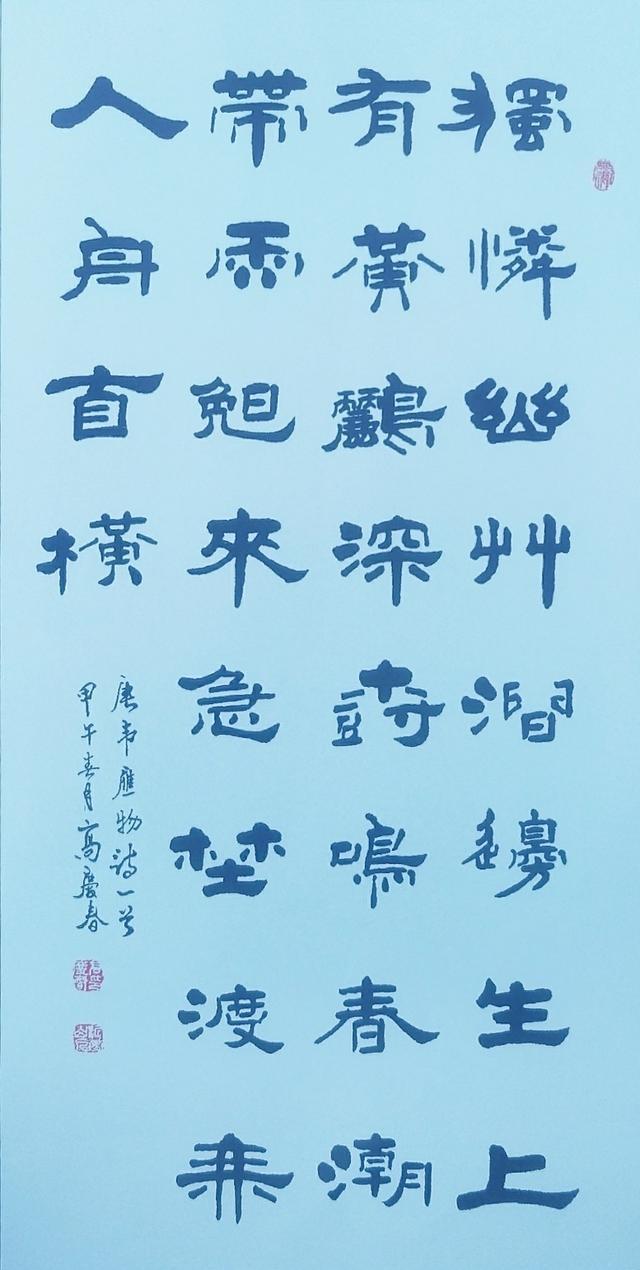 獨憐幽艸澗邊生上
有黃鸝深樹鳴春潮
帶雨晚來急埜渡無
人舟自橫
唐韋應物詩一首
甲午春月高慶春